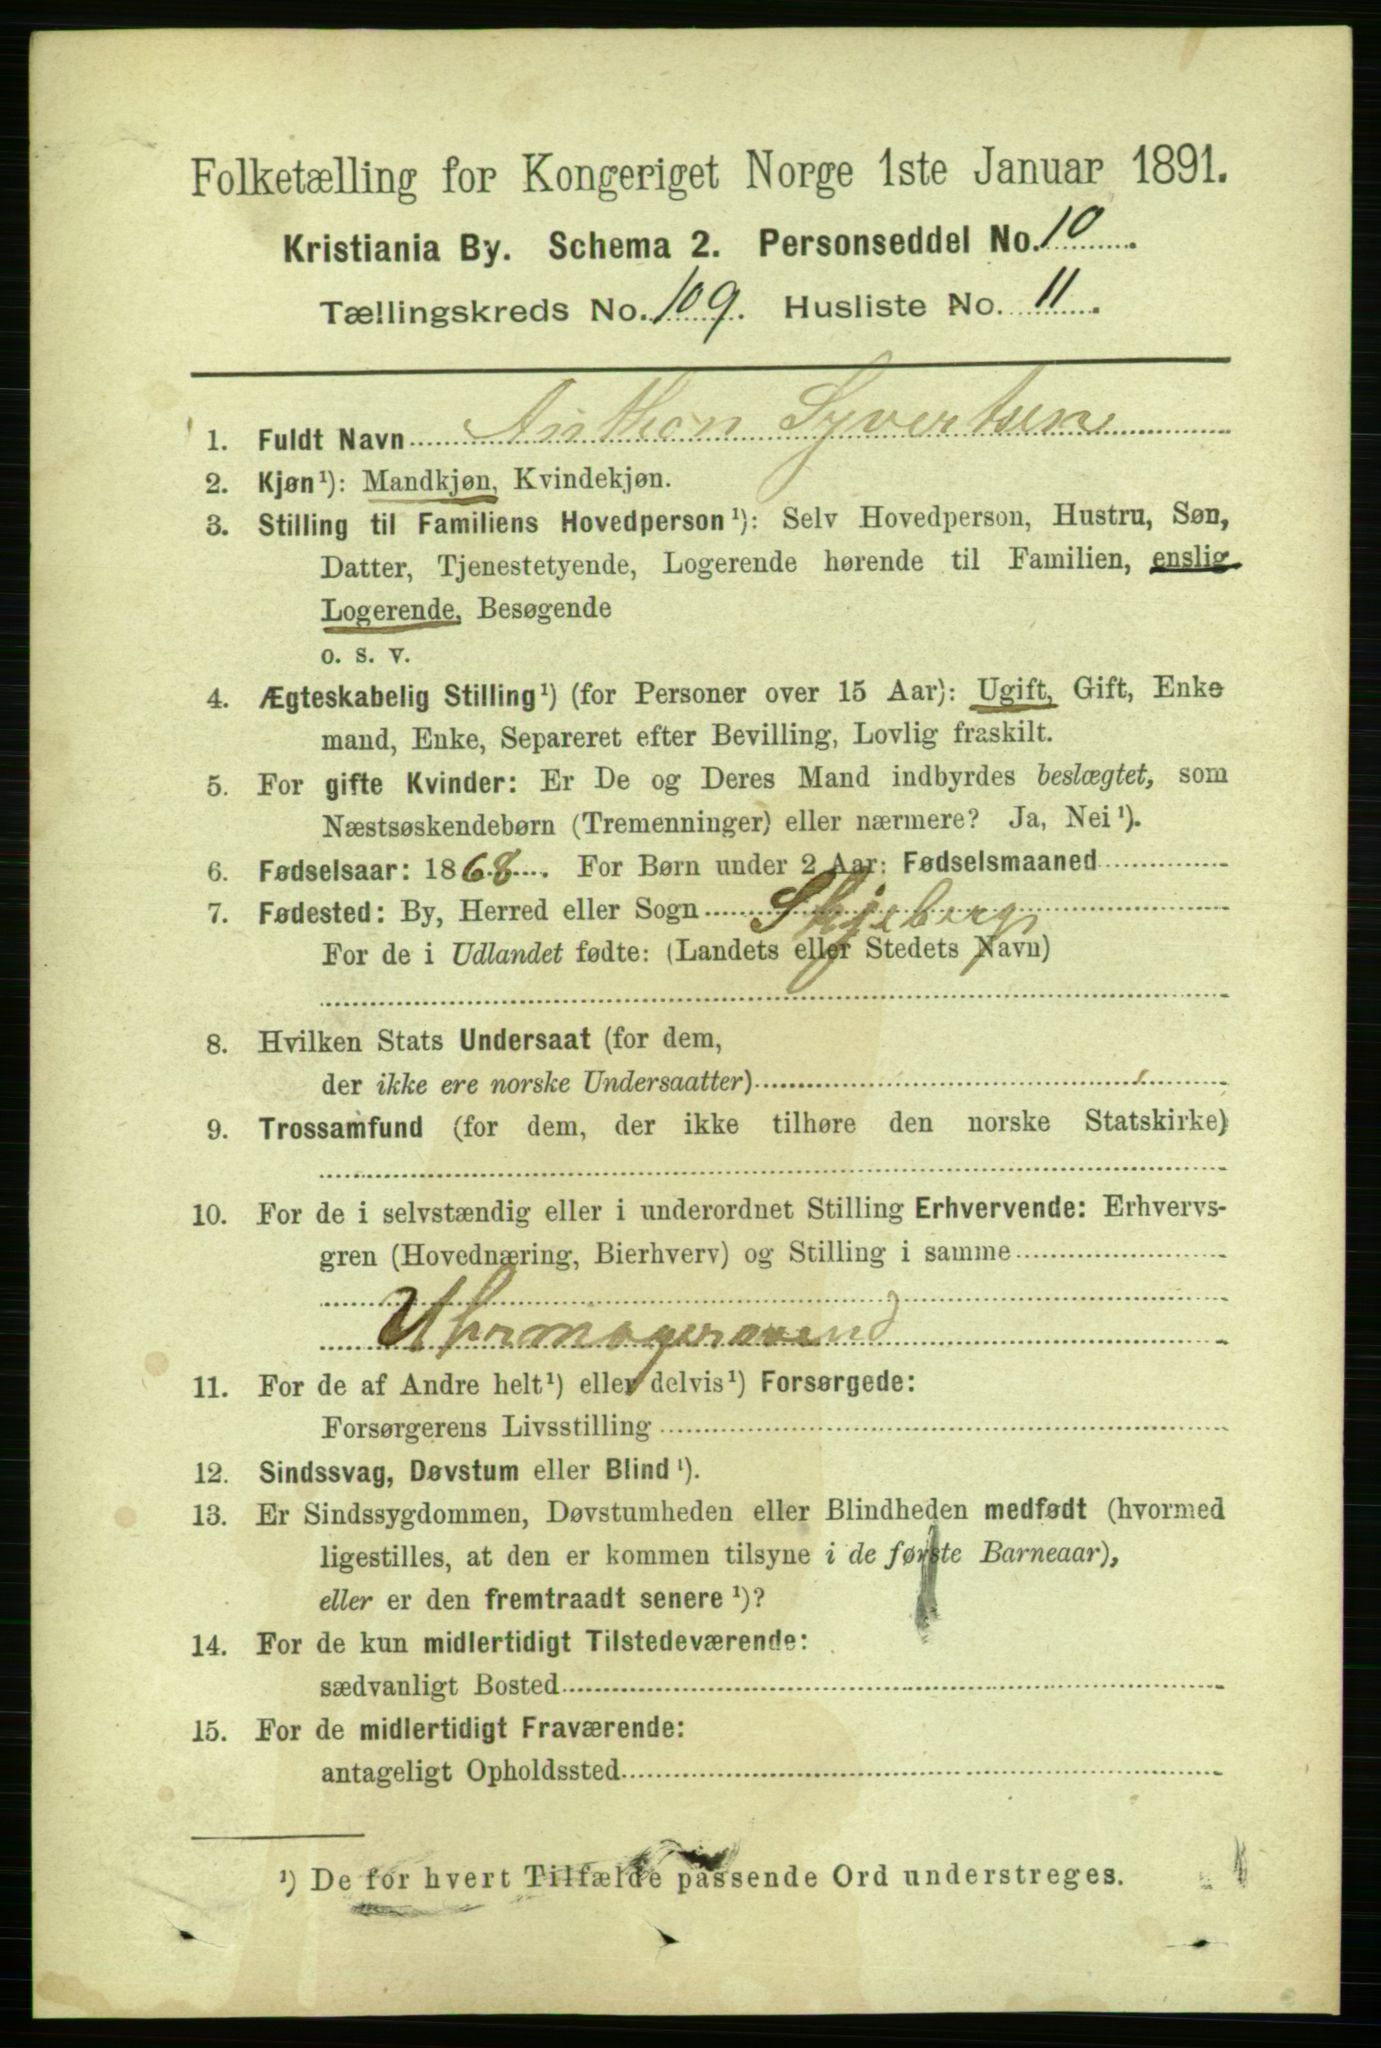 Folketælling for Kongeriget Norge 1ste Januar 1891.
Kristiania By. Schema 2. Personseddel No. 10.
Tællingskreds No. 109. Husliste No. 11.
1. Fuldt Navn Anthon Syvertsen
2. Kjøn¹): Mandkjøn, Kvindekjøn.
3. Stilling til Familiens Hovedperson¹): Selv Hovedperson, Hustru, Søn,
Datter, Tjenestetyende, Logerende hørende til Familien, enslig
Logerende, Besøgende
o. s. v.
4. Ægteskabelig Stilling¹) (for Personer over 15 Aar): Ugift, Gift, Enke
mand, Enke, Separeret efter Bevilling, Lovlig fraskilt.
5. For gifte Kvinder: Er De og Deres Mand indbyrdes beslægtet, som
Næstsøskendebørn (Tremenninger) eller nærmere? Ja, Nei¹).
6. Fødselsaar: 1868. For Børn under 2 Aar: Fødselsmaaned
7. Fødested: By, Herred eller Sogn Skjeberg
For de i Udlandet fødte: (Landets eller Stedets Navn)
8. Hvilken Stats Undersaat (for dem,
der ikke ere norske Undersaatter)
9. Trossamfund (for dem, der ikke tilhøre den norske Statskirke)
10. For de i selvstændig eller i underordnet Stilling Erhvervende: Erhvervs-
gren (Hovednæring, Bierhverv) og Stilling i samme
Uhrmagersvend
11. For de af Andre helt¹) eller delvis¹) Forsørgede:
Forsørgerens Livsstilling
12. Sindssvag, Døvstum eller Blind¹).
13. Er Sindssygdommen, Døvstumheden eller Blindheden medfødt (hvormed
ligestilles, at den er kommen tilsyne i de første Barneaar),
eller er den fremtraadt senere¹)?
14. For de kun midlertidigt Tilstedeværende:
sædvanligt Bosted
15. For de midlertidigt Fraværende:
antageligt Opholdssted
¹) De for hvert Tilfælde passende Ord understreges.